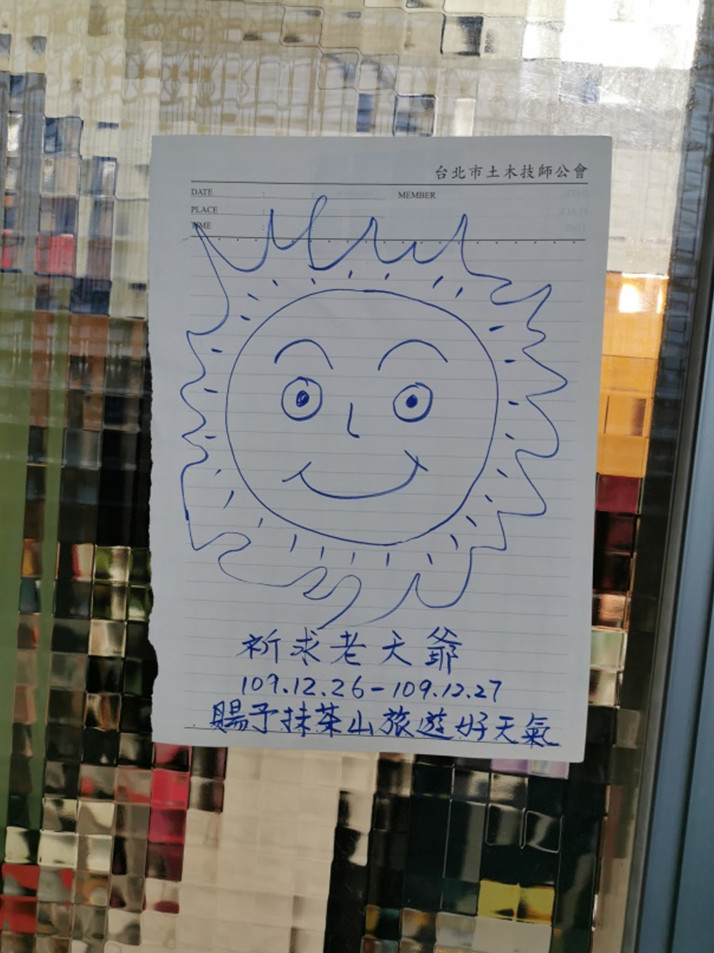 台北市土木技師公會
DATE : MEMBER
PLACE :
TIME :
祈求老天爺
109.12.26-109.12.27
賜予抹茶山旅遊好天氣